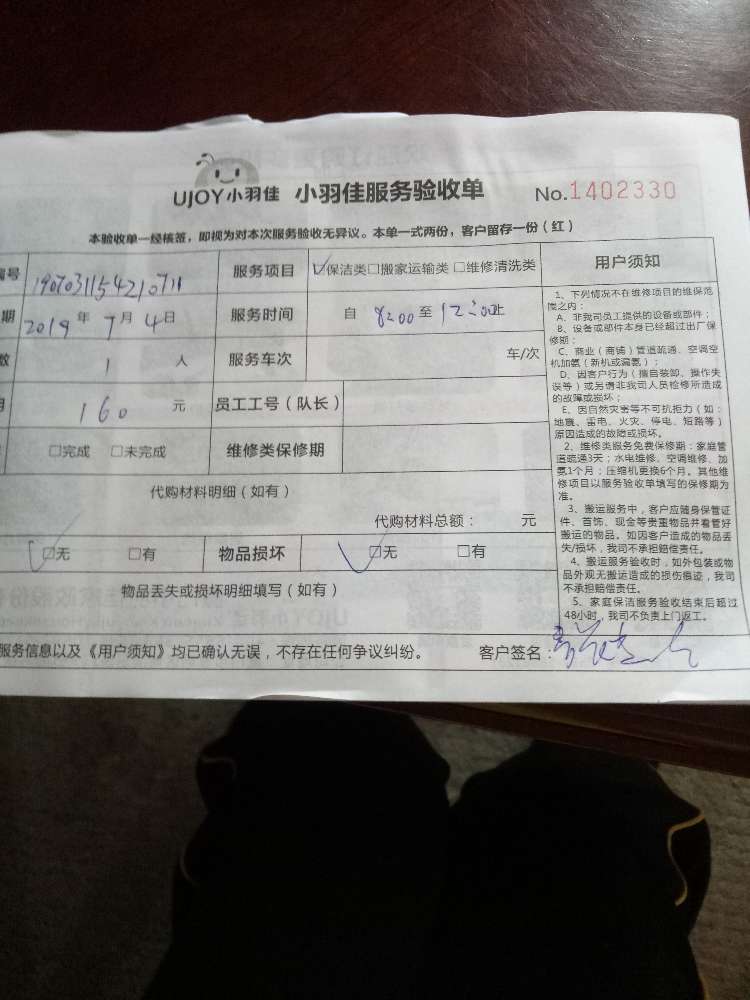 UJOY小羽佳 小羽佳服务验收单 No.1402330
本验收单一经核签，即视为对本次服务验收无异议。本单一式两份，客户留存一份（红）
编号 190703115421071 服务项目 ☑保洁类□搬家运输类□维修清洗类
期 2019年7月4日 服务时间 自8:00至12:00止
数 1人 服务车次 车/次
160元 员工工号（队长）
□完成 □未完成 维修类保修期
代购材料明细（如有）
代购材料总额： 元
☑无 □有 物品损坏 ☑无 □有
物品丢失或损坏明细填写（如有）
服务信息以及《用户须知》均已确认无误，不存在任何争议纠纷。 客户签名：
用户须知
1、下列情况不在维修项目的维保范
围之内：
A、非我司员工提供的设备或部件；
B、设备或部件本身已经超过出厂保
修期；
C、商业（商铺）管道疏通、空调空
机加氨（新机或漏氨）；
D、因客户行为（擅自装卸、操作失
误等）或另请非我司人员检修所造成
的故障或损坏；
E、因自然灾害等不可抗拒力（如：
地震、雷电、火灾、停电、短路等）
原因造成的故障或损坏。
2、维修类服务免费保修期：家庭管
道疏通3天；水电维修、空调维修、加
氨1个月；压缩机更换6个月。其他维
修项目以服务验收单填写的保修期为
准。
3、搬运服务中，客户应随身保管证
件、首饰、现金等贵重物品并看管好
搬运的物品。如因客户造成的物品丢
失/损坏，我司不承担赔偿责任。
4、搬运服务验收时，如外包装或物
品外观无搬运造成的损伤痕迹，我司
不承担赔偿责任。
5、家庭保洁服务验收结束后超过
48小时，我司不负责上门返工。